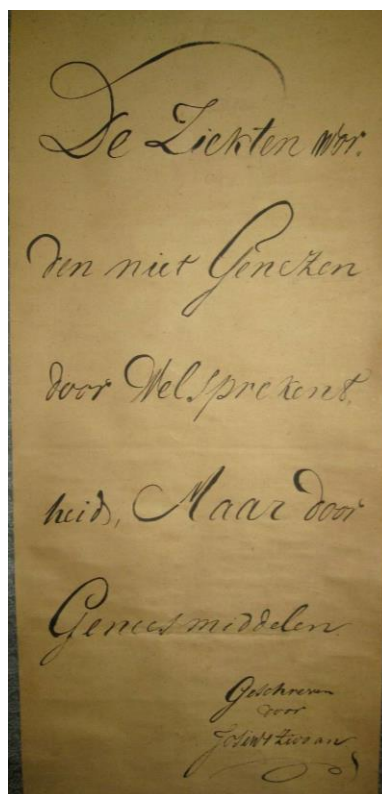 De Ziekten wor.
den niet Genezen
door Welsprekent.
heid, Maar door
Geneesmiddelen
Geschreven
door